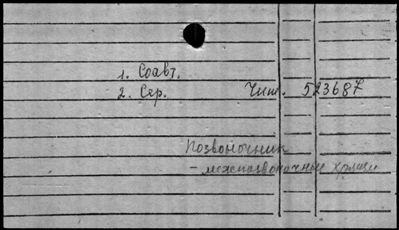 1. Соавт.
2. Сер. Чит. 523687
Позвоночник
- межпозвоночные хрящи